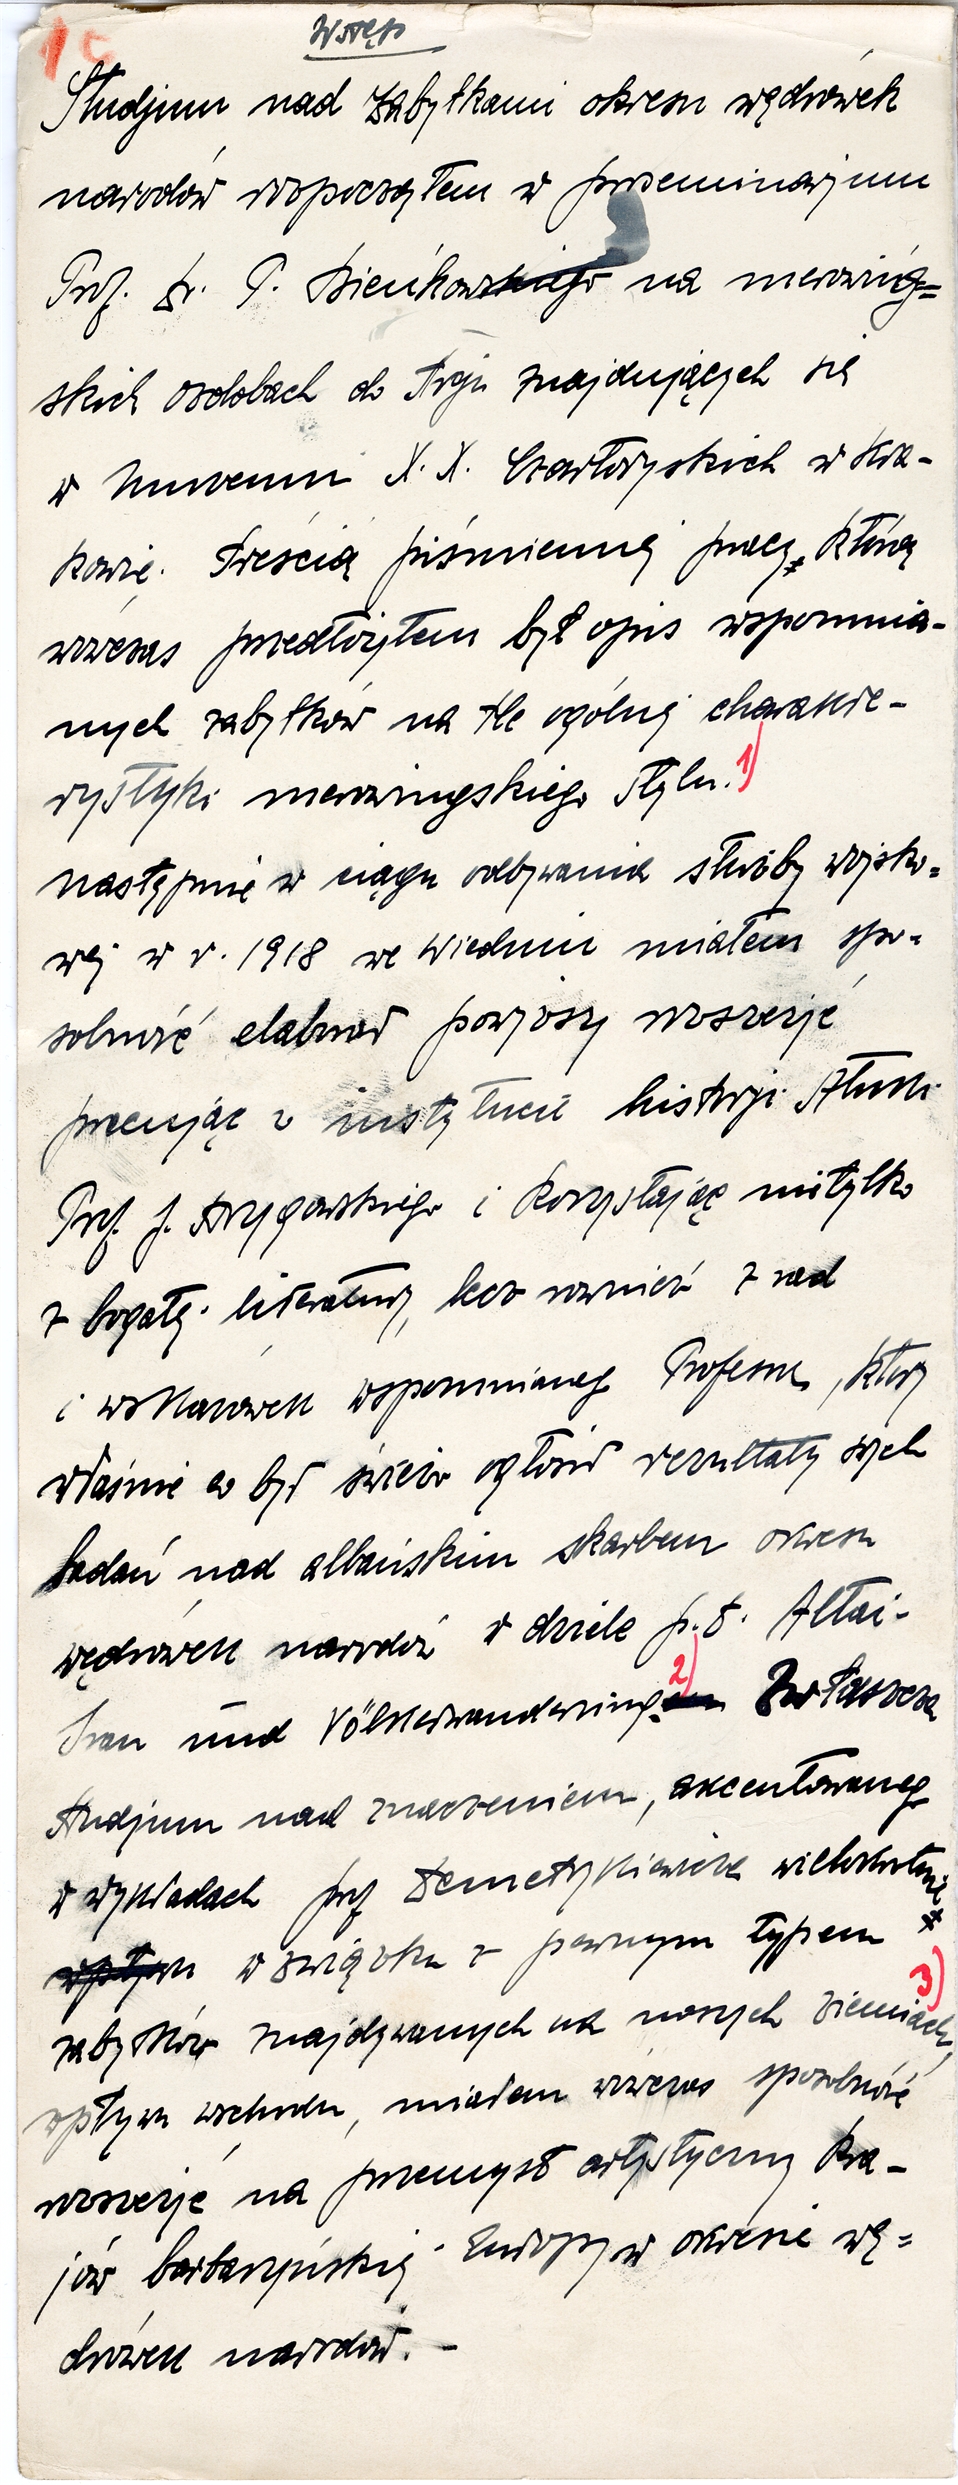 1c
Wstęp
Studjum nad zabytkami okresu wędrówek
narodów rozpocząłem w proseminarjum
Prof. Dr. P. Bieńkowskiego na merowing=
skich ozdobach do stroju znajdujących się
w Muzeum X. X. Czartoryskich w Kra-
kowie. Treścią piśmiennej pracy, którą
wówczas przedłożyłem był opis wspomnia-
nych zabytków na tle ogólnej charakte-
rystyki merowingskiego stylu. 1)
następnie w ciągu odbywania służby wojsko=
wej w r. 1918 we Wiedniu miałem spo=
sobność elaborat powyższy rozszerzyć
pracując w instytucie historji sztuki
Prof. J. Strzygowskiego i korzystając nietylko
z bogatej literatury, lecz również z rad
i wskazówek wspomnianego Profesora, który
właśnie co był świeżo ogłosił rezultaty swych
badań nad albańskim skarbem okresu
wędrówek narodów w dziele p.t. Altai-
Iran und Völkerwanderung. 2) Zwłaszcza
studjum nad znaczeniem, akcentowanego
w wykładach prof Demetrykiewicza wielokrotnie
wpływu w związku z pewnym typem
zabytków znajdywanych na naszych ziemiach, 3)
wpływu wschodu, miałem wówczas sposobność
rozszerzyć na przemysł artystyczny kra-
jów barbarzyńskiej Europy w okresie wę=
drówek narodów. -